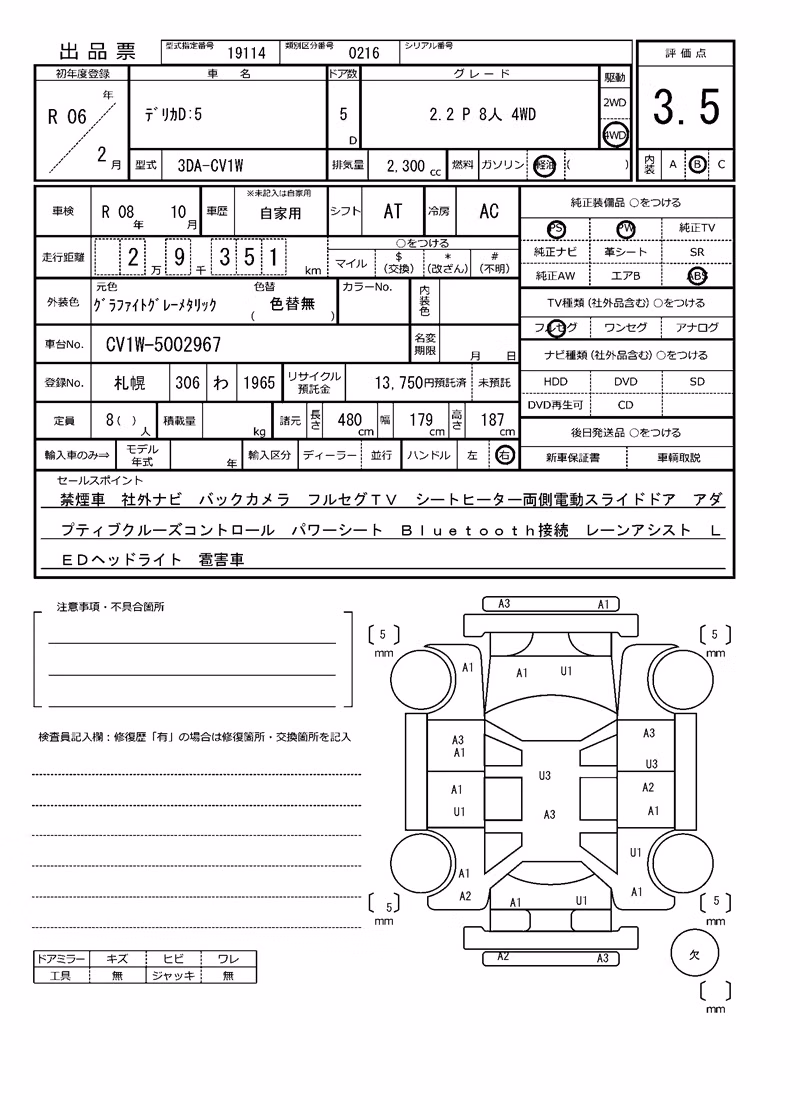 出品票 型式指定番号 19114 類別区分番号 0216 シリアル番号
初年度登録 車名 ドア数 グレード 駆動 評価点
R 06 年 2 月 デリカD:5 5 D 2.2 P 8人 4WD 2WD 4WD 3.5
型式 3DA-CV1W 排気量 2,300 cc 燃料 ガソリン 軽油 ( ) 内装 A B C
車検 R 08 年 10 月 車歴 ※未記入は自家用 自家用 シフト AT 冷房 AC
純正装備品 ○をつける
PS PW 純正TV
走行距離 2 万 9 千 3 5 1 km ○をつける マイル $ (交換) * (改ざん) # (不明)
純正ナビ 革シート SR
純正AW エアB ABS
外装色 元色 グラファイトグレーメタリック 色替 ( 色替無 ) カラーNo. 内装色
TV種類(社外品含む)○をつける
フルセグ ワンセグ アナログ
車台No. CV1W-5002967 名変期限 月 日
ナビ種類(社外品含む)○をつける
登録No. 札幌 306 わ 1965 リサイクル預託金 13,750円預託済 未預託
HDD DVD SD
DVD再生可 CD
定員 8( ) 人 積載量 kg 諸元 長さ 480 cm 幅 179 cm 高さ 187 cm
後日発送品 ○をつける
輸入車のみ⇒ モデル年式 年 輸入区分 ディーラー 並行 ハンドル 左 右
新車保証書 車輌取説
セールスポイント
禁煙車 社外ナビ バックカメラ フルセグTV シートヒーター両側電動スライドドア アダ
プティブクルーズコントロール パワーシート Bluetooth接続 レーンアシスト L
EDヘッドライト 雹害車
注意事項・不具合箇所
検査員記入欄:修復歴「有」の場合は修復箇所・交換箇所を記入
ドアミラー キズ ヒビ ワレ
工具 無 ジャッキ 無
A3 A1
〔5〕 〔5〕
mm mm
A1 A1 U1 A1
A3 A3
A1 U3
U3
A1 A2
U1 A3 A1
U1
A1
A2 A1
A1 U1
〔5〕 〔5〕
mm mm
A2 A3
欠
〔 〕
mm